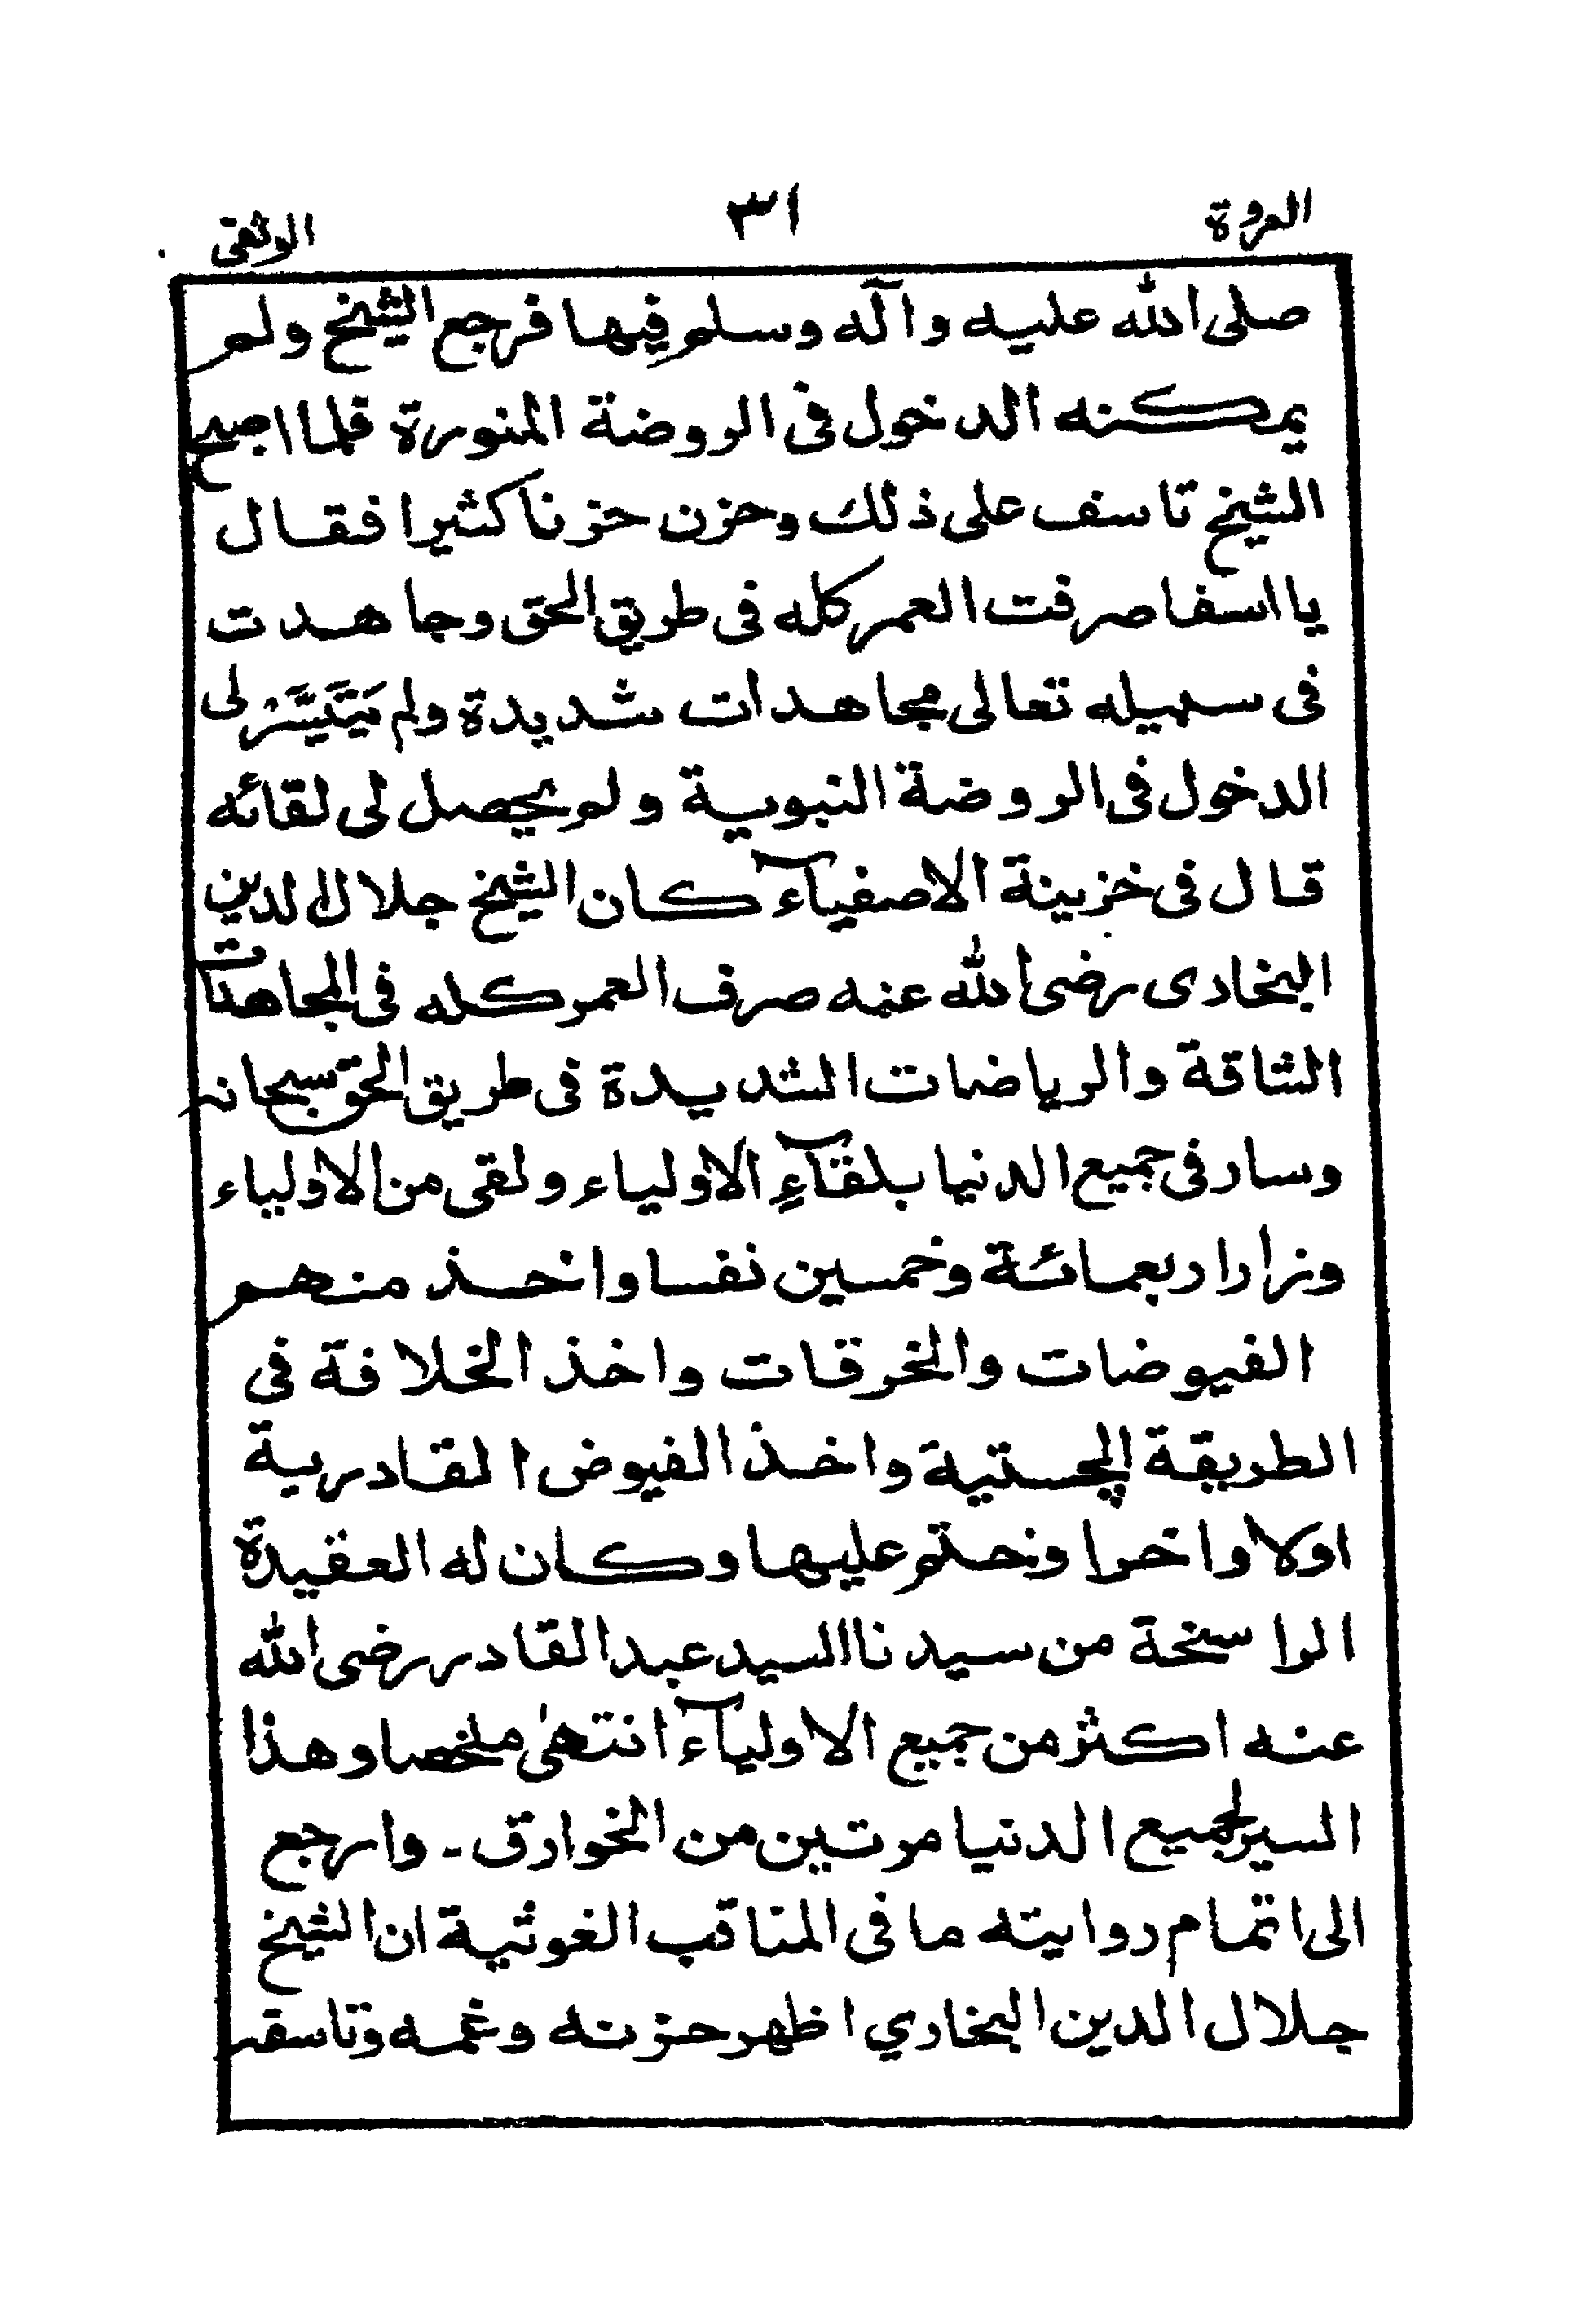 العروة ٣١ الوثقى
صلى الله عليه وآله وسلم فيها فرجع الشيخ ولم
يمكنه الدخول فى الروضة المنورة فلما اصبح
الشيخ تاسف على ذلك وحزن حزنا كثيرا فقال
يا اسفا صرفت العمر كله فى طريق الحق وجاهدت
فى سبيله تعالى مجاهدات شديدة ولم يَتَيَسَّر لى
الدخول فى الروضة النبوية ولم يحصل لى لقائه
قال فى خزينة الاصفيآء كان الشيخ جلال الدين
البخادى رضى الله عنه صرف العمر كله فى المجاهدات
الشاقة والرياضات الشديدة فى طريق الحق سبحانه
وسار فى جميع الدنيا بلقآءِ الاولياء ولقى من الاولياء
وزار اربعمائة وخمسين نفسا واخذ منهم
الفيوضات والخرقات واخذ الخلافة فى
الطريقة الچستية واخذ الفيوض القادرية
اولا واخرا ونحتم عليها وكان له العقيدة
الراسخة من سيدنا السيد عبد القادر رضى الله
عنه اكثر من جميع الاوليآء انتهىٰ ملخصا وهذا
السير لجميع الدنيا مرتين من الخوارق - وارجع
الى اتمام روايته ما فى المناقب الغوثية ان الشيخ
جلال الدين البخاري اظهر حزنه وغمه وتاسفه